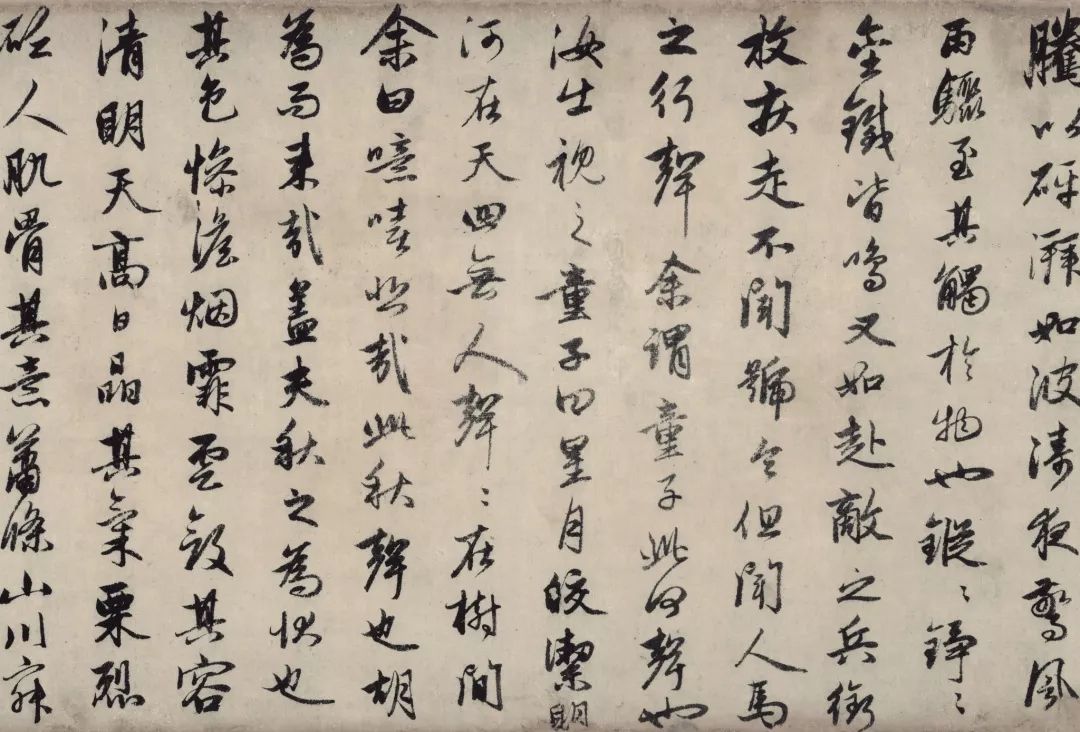 騰以砰湃如波濤夜驚風
雨驟至其觸於物也鏦〻錚〻
金鐵皆鳴又如赴敵之兵銜
枚疾走不聞號令但聞人馬
之行聲余謂童子此何聲也
汝出視之童子曰星月皎潔明
河在天四無人聲〻在樹間
余曰噫嘻悲哉此秋聲也胡
為而来哉蓋夫秋之為狀也
其色慘澹烟霏雲斂其容
清明天高日晶其氣栗烈
砭人肌骨其意蕭條山川寂